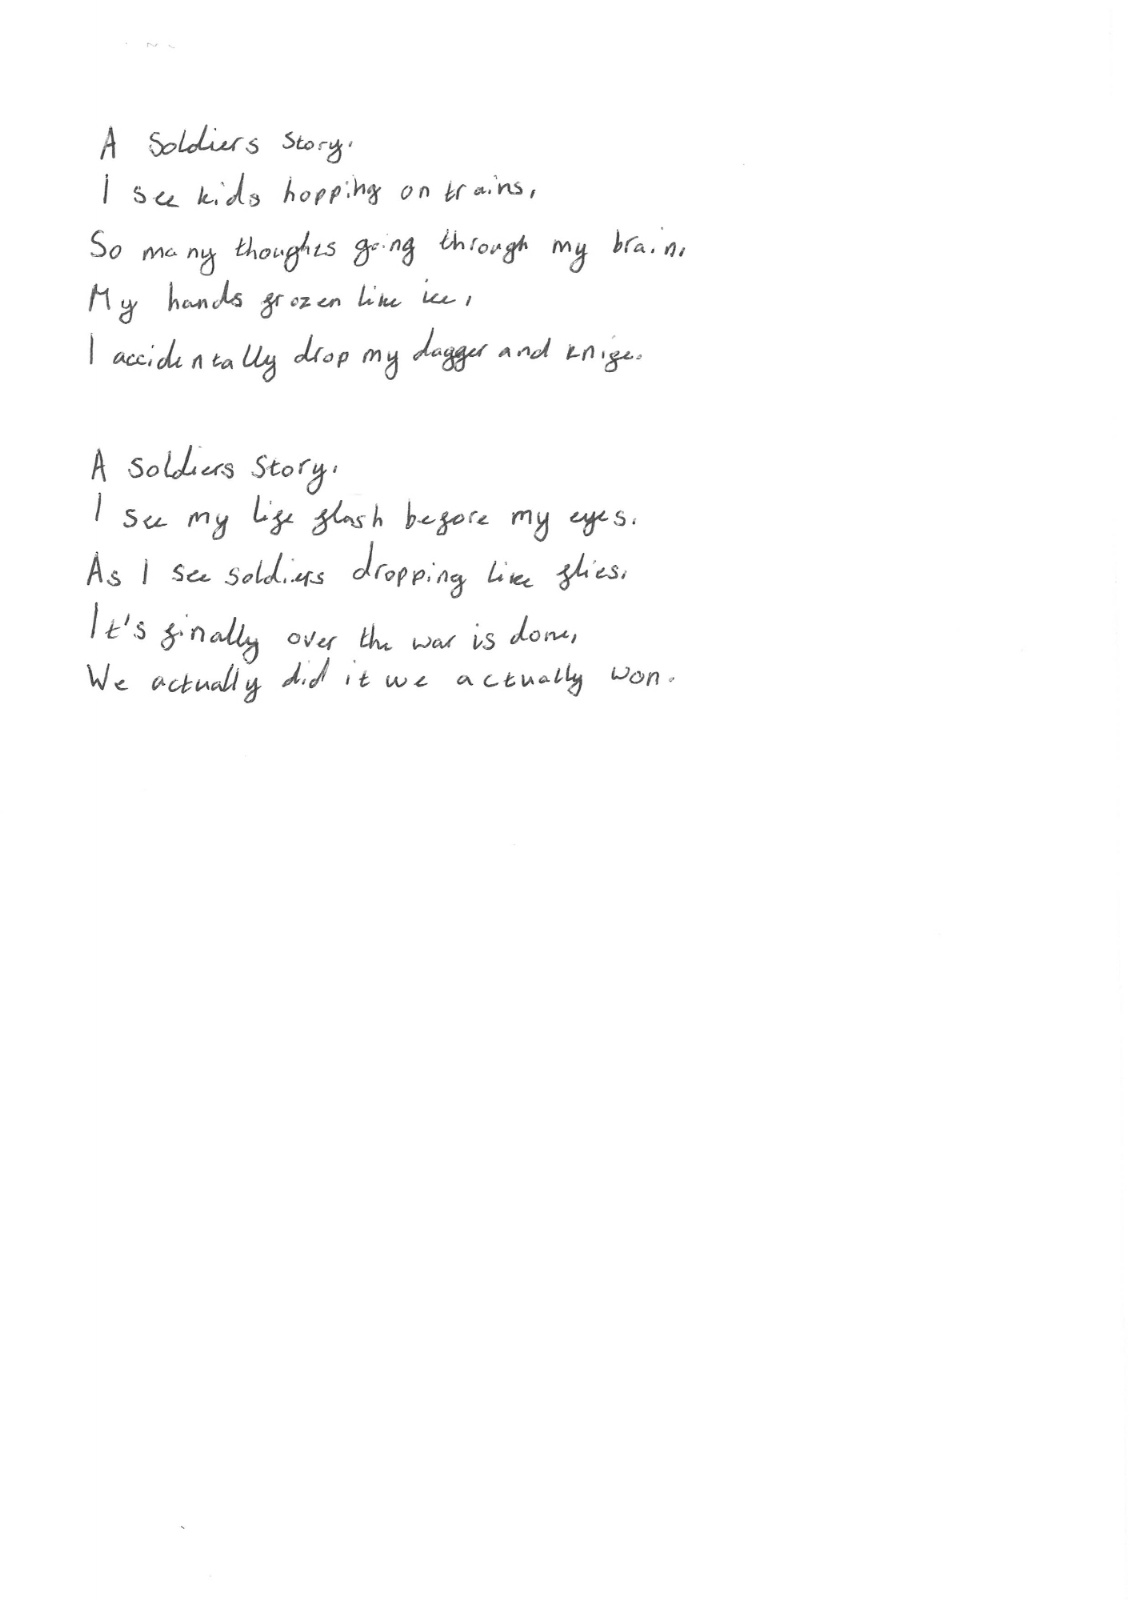 A Soldiers Story.
I see kids hopping on trains,
So many thoughts going through my brain,
My hands frozen like ice,
I accidentally drop my dagger and knife.
A Soldiers Story.
I see my life flash before my eyes.
As I see soldiers dropping like flies.
It's finally over the war is done,
We actually did it we actually won.